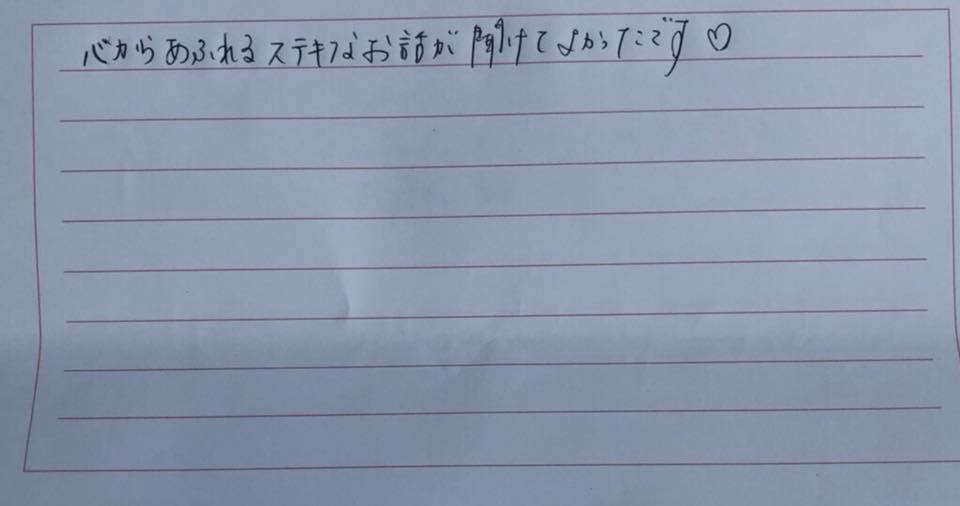 心からあふれるステキなお話が聞けてよかったです♡